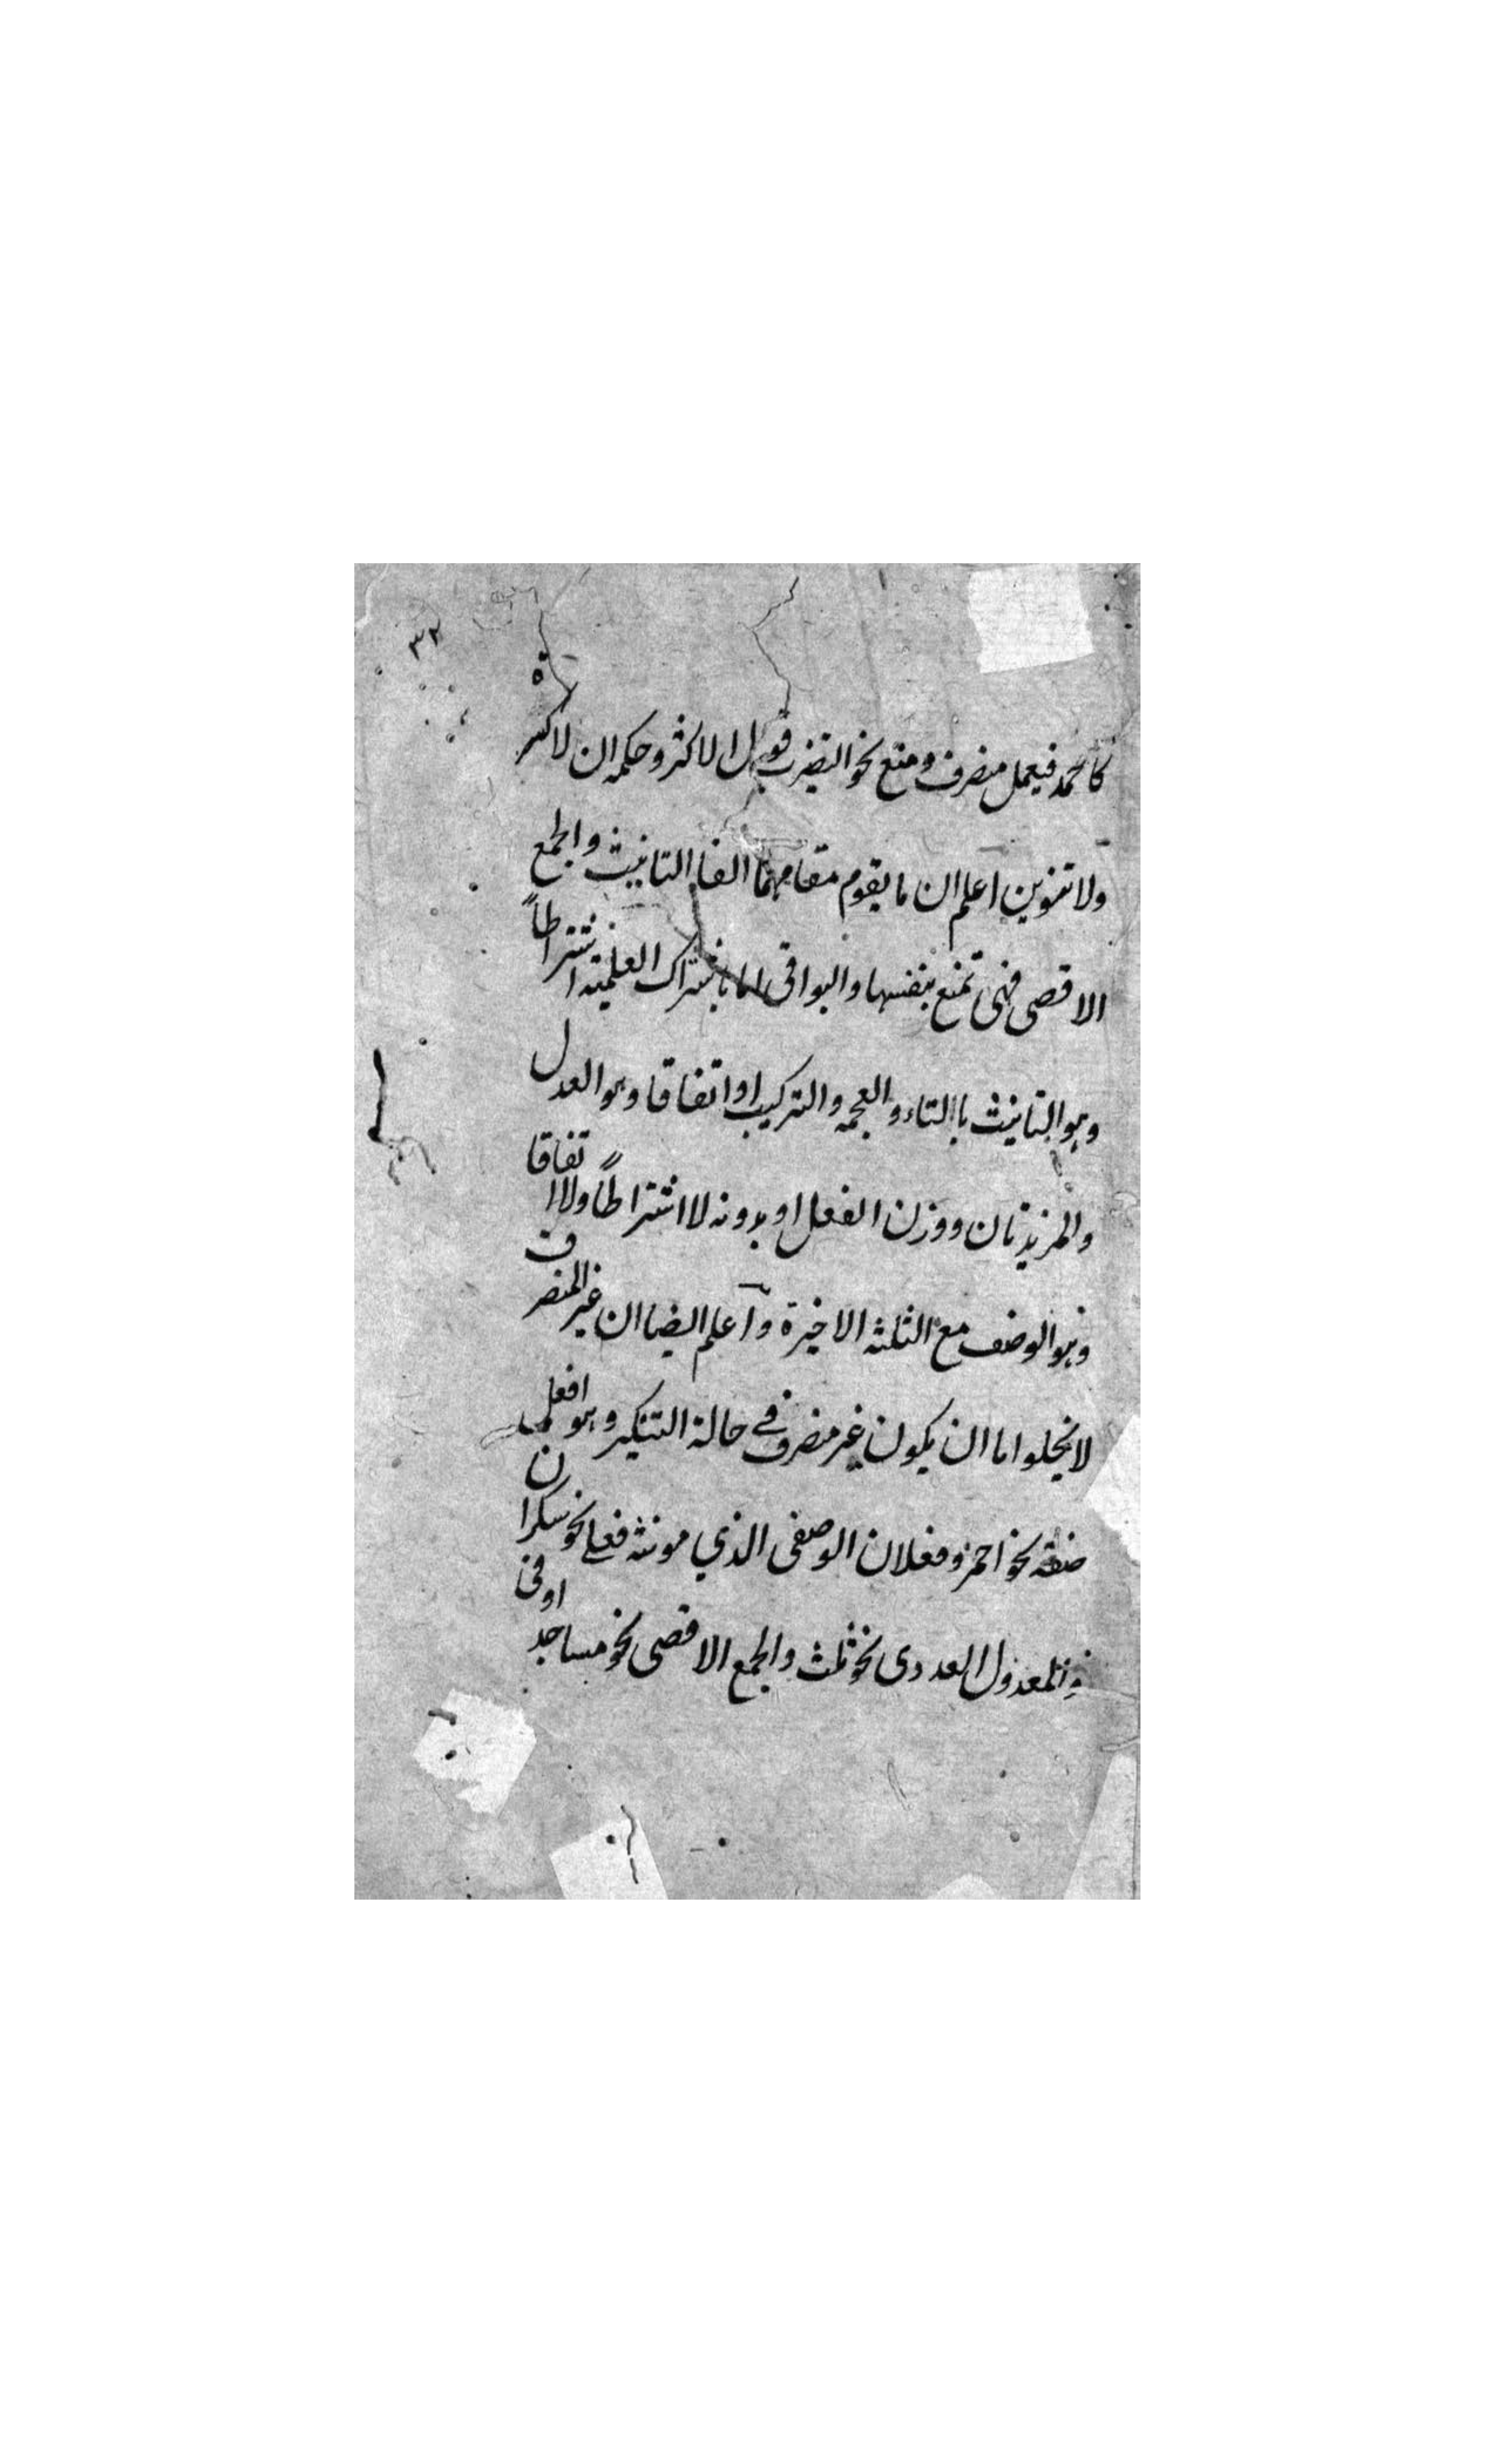 ٣٢
كالحمد فيعمل منصرف ومنع نحو التضرب قول الاكثر وحكمه ان لا كسرة
ولا تنوين اعلم ان ما يقوم مقامهما الفا التانيث والجمع
الاقصى فهى تمنع بنفسها والبواقى اما باشتراك العلمية اشتراطاً
وهو التانيث باالتاء والعجمه والتركيب او اتفاقا وهو العدل
والمزيدتان ووزن الفعل او بدونه لا اشتراطاً ولا اتفاقا
وهو الوصف مع الثلثه الاخيرة واعلم ايضا ان غير المنصرف
لا يخلوا اما ان يكون غير منصرف في حالة التنكير وهو افعل
صفة نحو احمر وفعلان الوصفى الذي مونثه فعلى نحو سكران
والمعدول العددى نحو ثلث والجمع الاقصى نحو مساجد اوفى